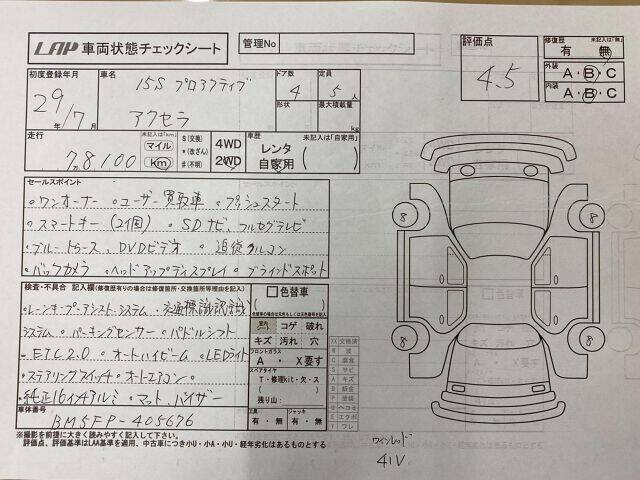 LAP 車両状態チェックシート
管理No
評価点
4.5
修復歴 未記入は「無」
有 無
外装 A・B・C
内装 A・B・C
初度登録年月
29年/7月
車名
15S プロアクティブ
アクセラ
ドア数
4
定員
5人
形状
最大積載量
kg
走行 未記入は「km」
7万8100
マイル
km
$(交換)
*(改ざん)
#(不明)
4WD
2WD
車歴 未記入は「自家用」
レンタ
自家用
セールスポイント
・ワンオーナー ・ユーザー買取車 ・プッシュスタート
・スマートキー(2個) ・SDナビ、フルセグテレビ
・ブルートゥース、DVDビデオ ・追従クルコン
・バックカメラ ・ヘッドアップディスプレイ ・ブラインドスポット
検査・不具合 記入欄(修復歴有りの場合は修復箇所・交換箇所等情報を記入)
・レーンキープ・アシスト・システム ・交通標識認識
システム ・パーキングセンサー ・パドルシフト
・ETC2.0 ・オートハイビーム ・LEDライト
・ステアリングスイッチ ・オートエアコン
・純正16インチアルミ ・マット、バイザー
色替車
室内シート
コゲ 破れ
キズ 汚れ 穴
フロントガラス
A ・ X要す
スペアタイヤ
T・修理kit・欠・ス
残り山:
工具
有・無
ジャッキ
有・無
XX 交換済
W 波
C 腐食
S サビ
A キズ
B 鈑金
P 塗装
U ヘコミ
E エクボ
Y ワレ
車体番号
BM5FP-405676
※撮影を前提に大きく読みやすく記入して下さい。
評価点、評価基準はLAA基準を適用、中古車につき小U・小A・小U・経年劣化はあるものとする
8
8
8
8
ワインレッド
41V